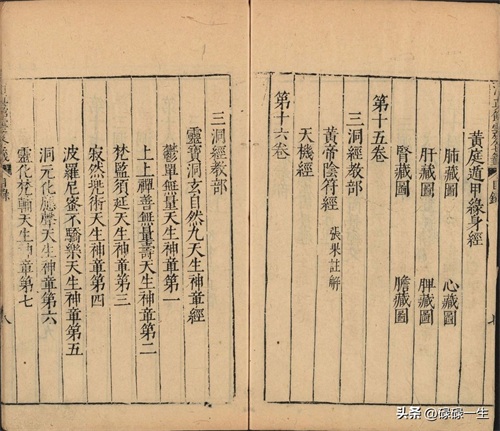 黃庭遁甲緣身經
肺藏圖 心藏圖
肝藏圖 脾藏圖
腎藏圖 膽藏圖
第十五卷
三洞經教部
黃帝陰符經 張果註解
天機經
第十六卷
三洞經教部
靈寶洞玄自然九天生神章經
鬱單無量天生神章第一
上上禪善無量壽天生神章第二
梵監須延天生神章第三
寂然兠術天生神章第四
波羅尼蜜不驕樂天生神章第五
洞元化應聲天生神章第六
靈化梵輔天生神章第七
目錄
八
頭条 @礞礞一生